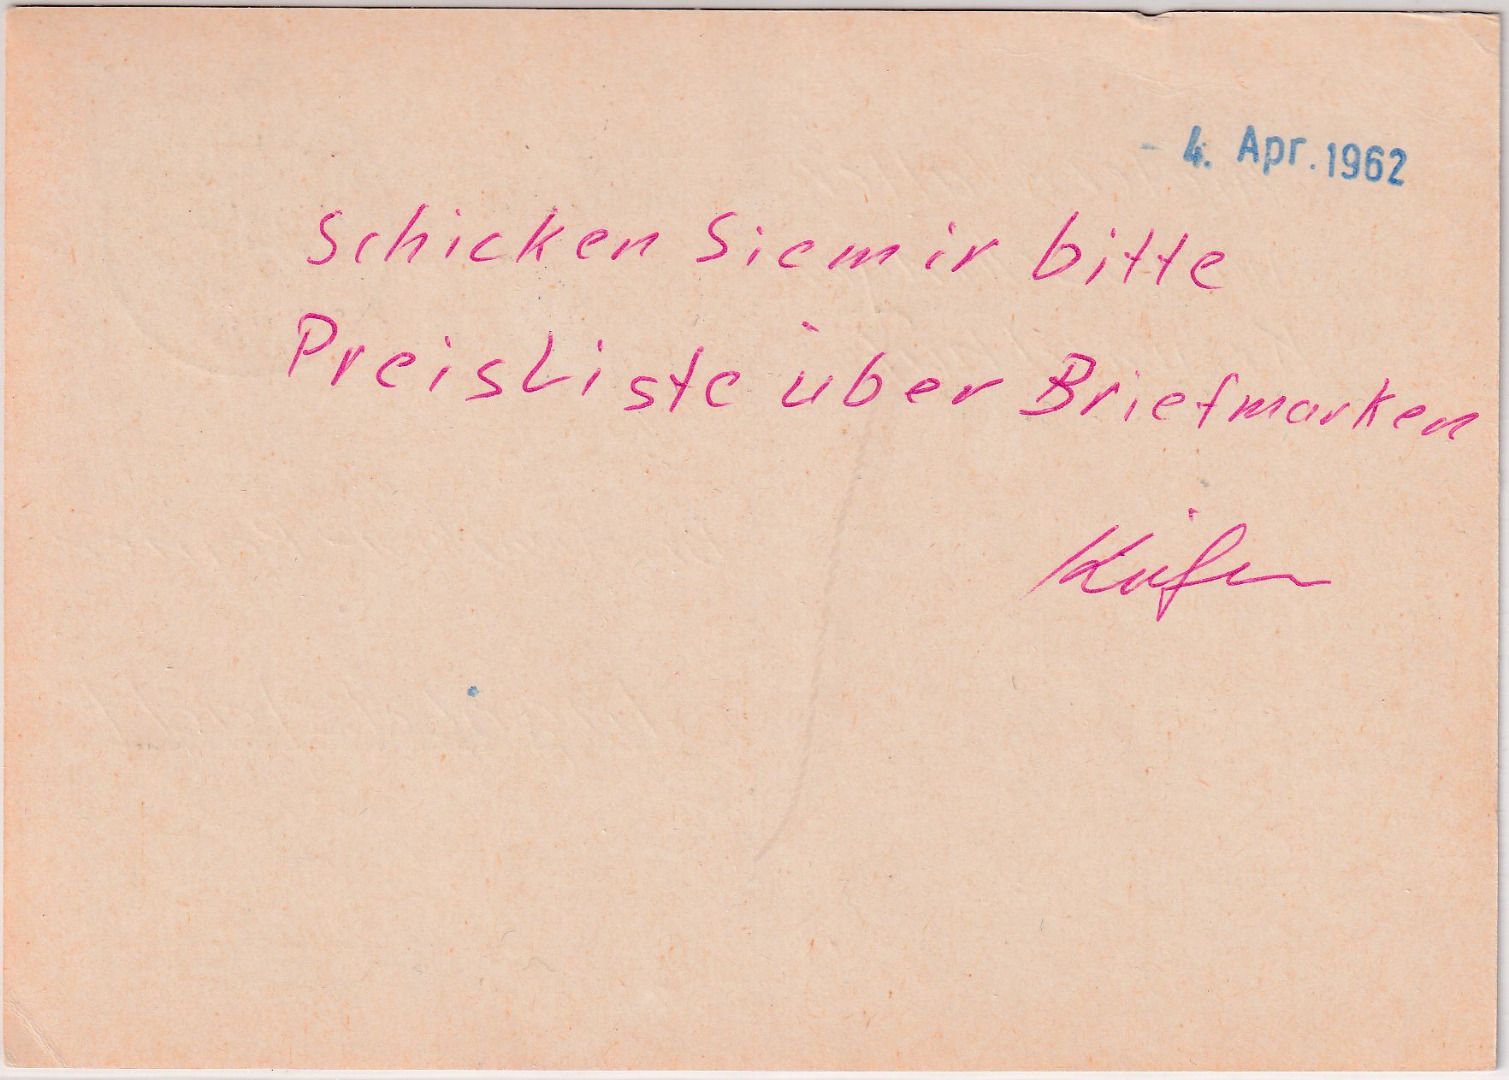 - 4. Apr. 1962
Schicken Sie mir bitte
PreisListe über Briefmarken